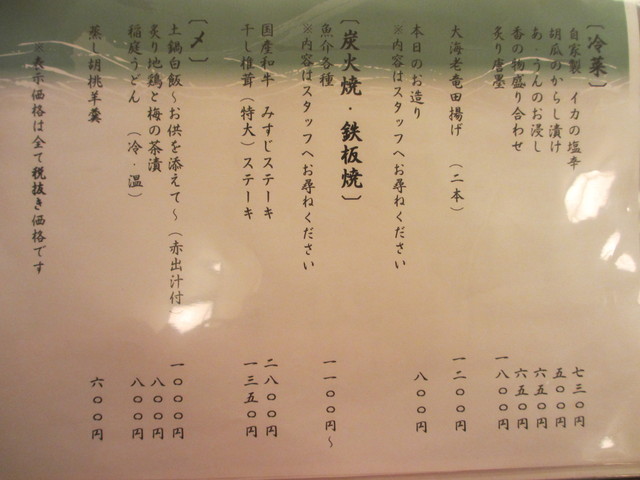 〔冷菜〕
自家製 イカの塩辛 七三〇円
胡瓜のからし漬け 五〇〇円
あ・うんのお浸し 六五〇円
香の物盛り合わせ 六五〇円
炙り唐墨 一八〇〇円
大海老竜田揚げ (二本) 一二〇〇円
本日のお造り 八〇〇円
※内容はスタッフへお尋ねください
〔炭火焼・鉄板焼〕
魚介各種 一一〇〇円~
※内容はスタッフへお尋ねください
国産和牛 みすじステーキ 二八〇〇円
干し椎茸(特大)ステーキ 一三五〇円
〔〆〕
土鍋白飯~お供を添えて~(赤出汁付) 一〇〇〇円
炙り地鶏と梅の茶漬 八〇〇円
稲庭うどん (冷・温) 八〇〇円
蒸し胡桃羊羹 六〇〇円
※表示価格は全て税抜き価格です